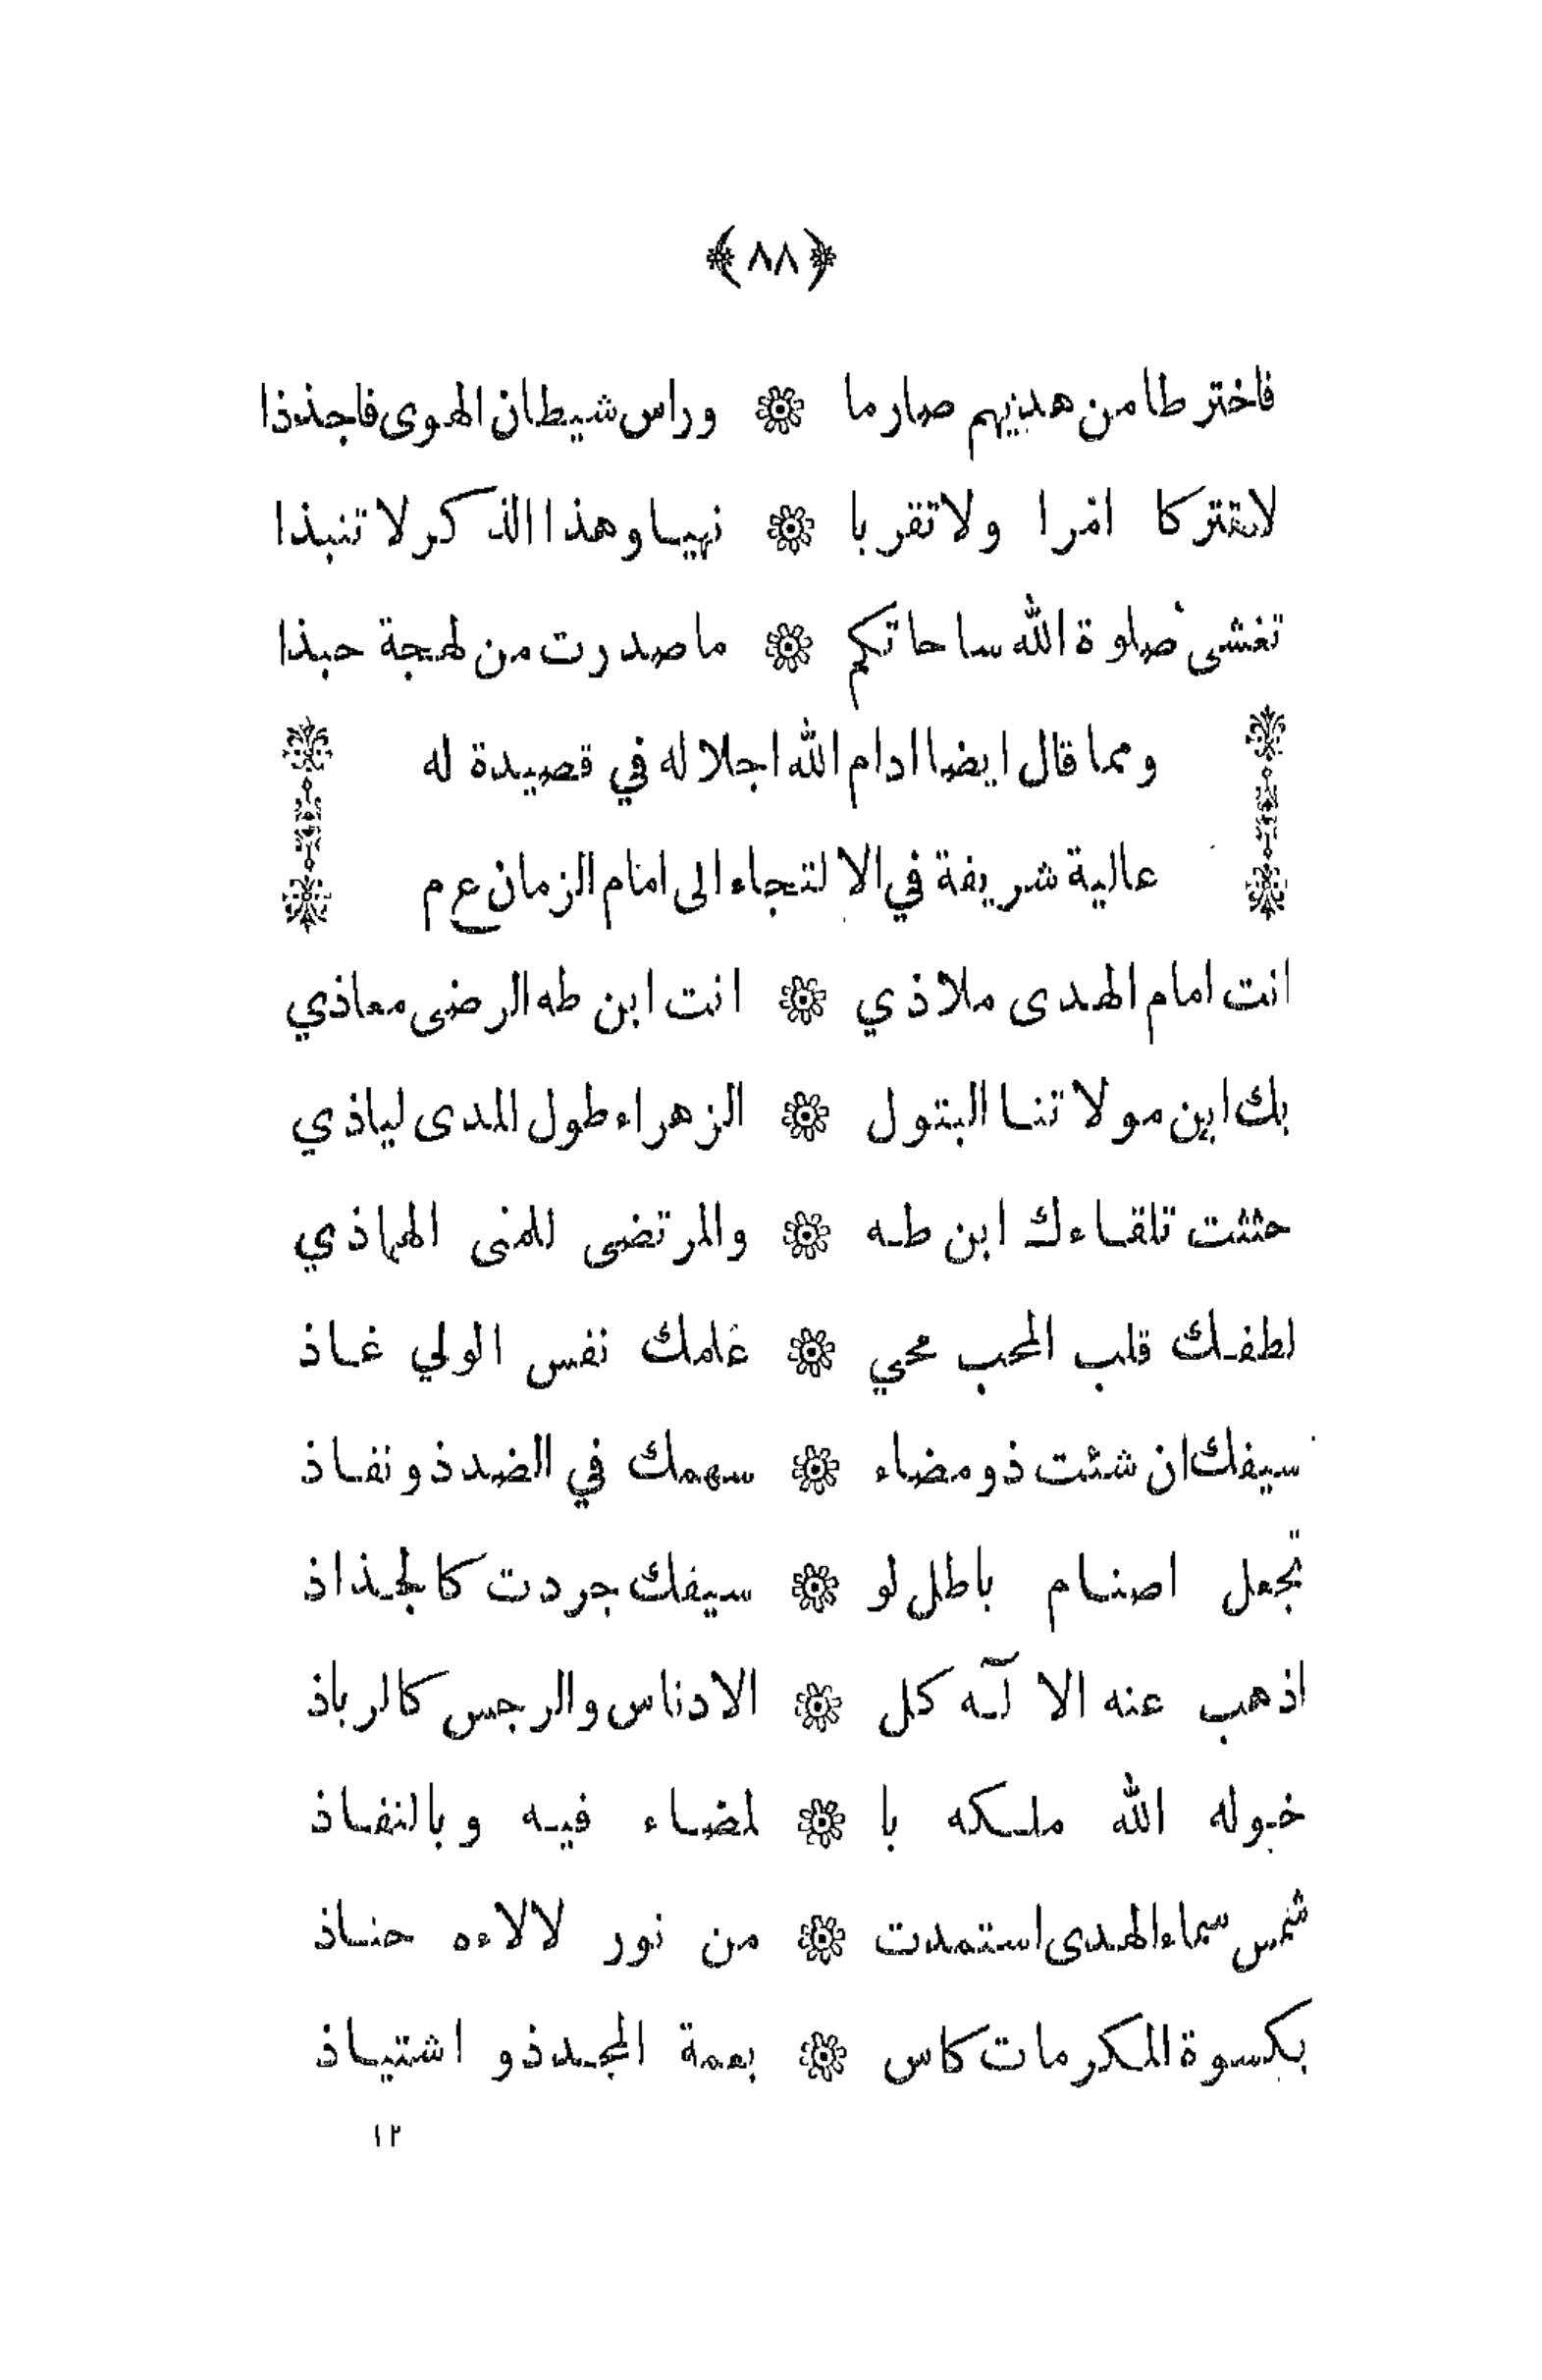 ﴿٨٨﴾
فاخترطا من هديهم صارما ۞ وراس شيطان الهوى فاجذذا
لاتتركا امرا ولا تقربا ۞ نهيا وهذا الذكر لا تنبذا
تغشى صلوة الله ساحاتكم ۞ ما صدرت من لهجة حبذا
ومما قال ايضا ادام الله اجلاله في قصيدة له
عالية شريفة في الالتجاء الى امام الزمان ع م
انت امام الهدى ملاذي ۞ انت ابن طه الرضى معاذي
بك ابن مولاتنا البتول ۞ الزهراء طول المدى لياذي
حثثت تلقاءك ابن طه ۞ والمرتضى للمنى الهماذي
لطفك قلب المحب محي ۞ علمك نفس الولي غاذ
سيفك ان شئت ذو مضاء ۞ سهمك في الضد ذو نفاذ
تجعل اصنام باطل لو ۞ سيفك جردت كالجذاذ
اذهب عنه الا آله كل ۞ الادناس والرجس كالرباذ
خوله الله ملكه با ۞ لمضاء فيه وبالنفاذ
شمس سماء الهدى استمدت ۞ من نور لالاءه حناذ
بكسوة المكرمات كاس ۞ بعمة المجد ذو اشتياذ
١٢